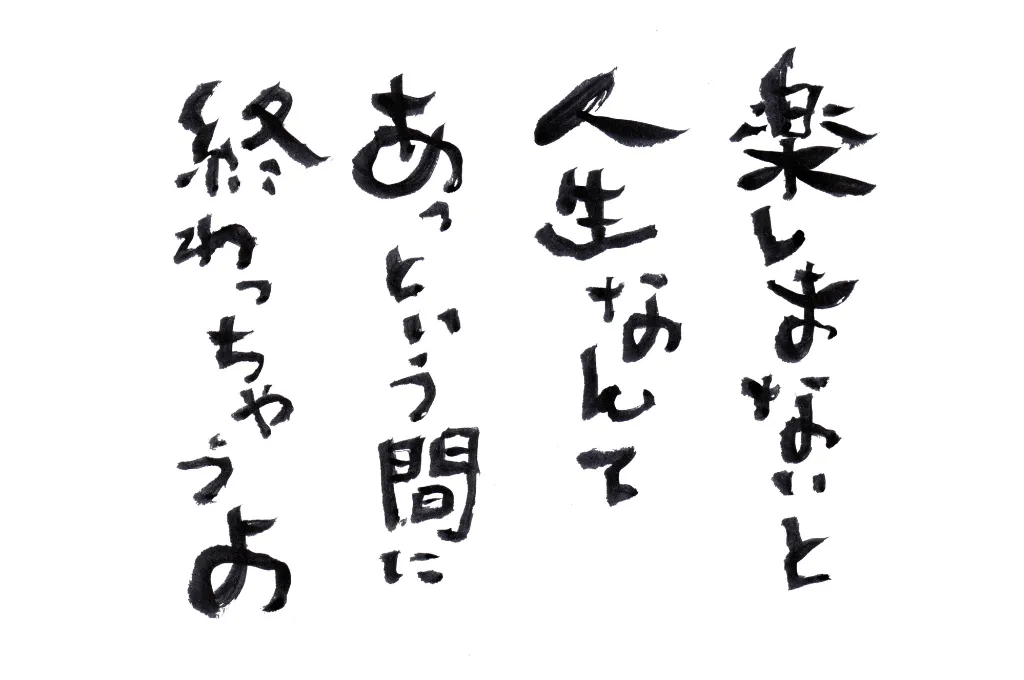 楽しまないと
人生なんて
あっという間に
終わっちゃうよ